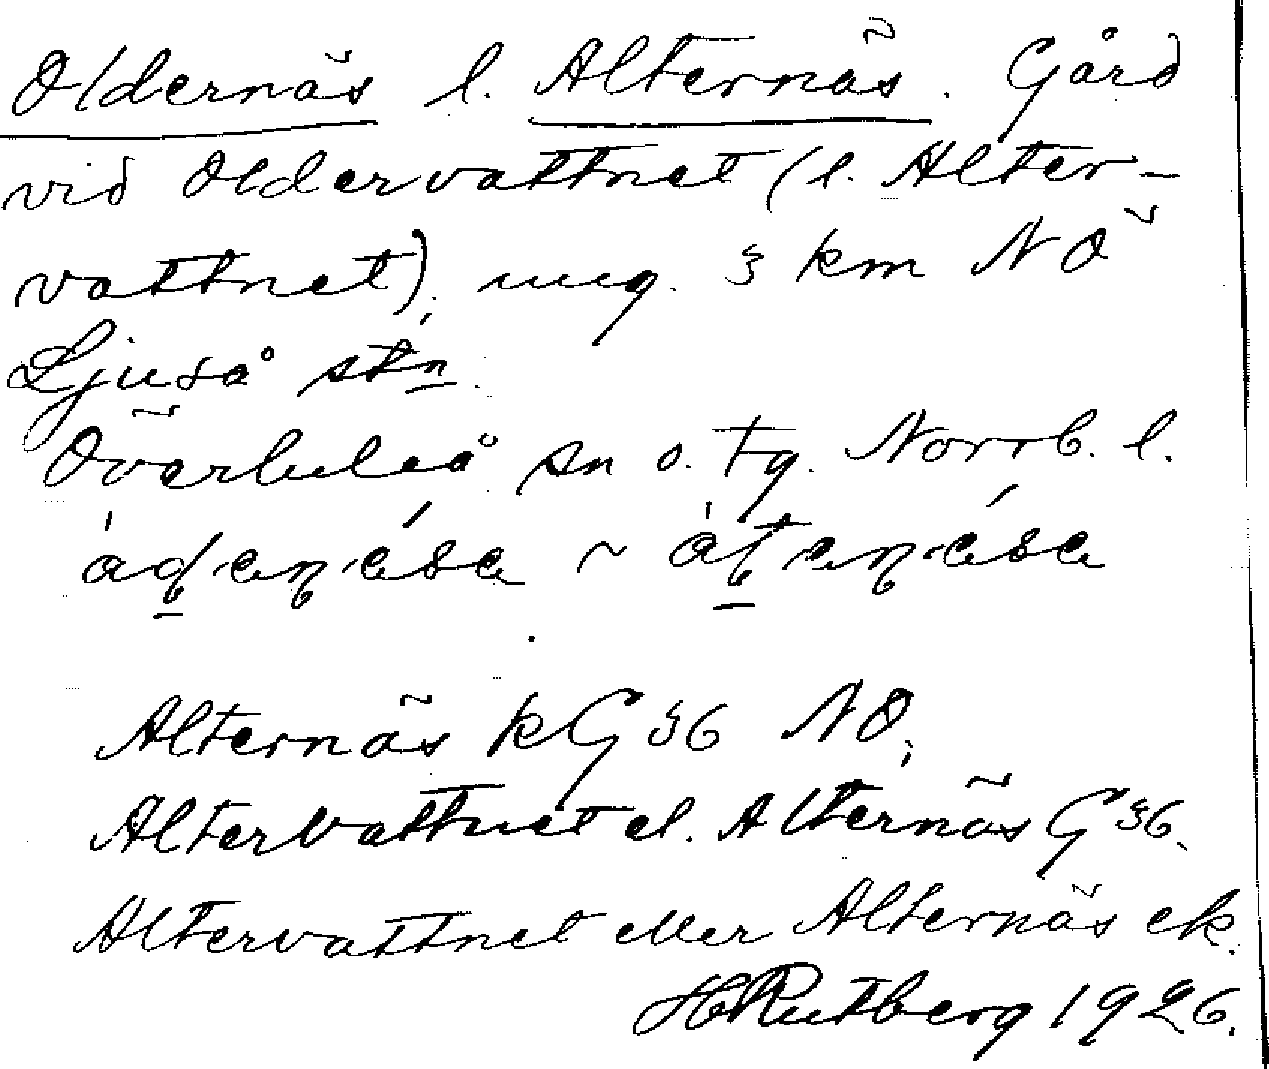 Oldernäs l. Alternäs. Gård
vid Oldervattnet (l. Alter-
vattnet), ung. 3 km NÖ
Ljuså stn.
Överluleå sn o. tg. Norrb. l.
Alternäs kG 36 NO,
Altervattnet el. Alternäs G 36.
Altervattnet eller Alternäs ek.
HRutberg 1926.